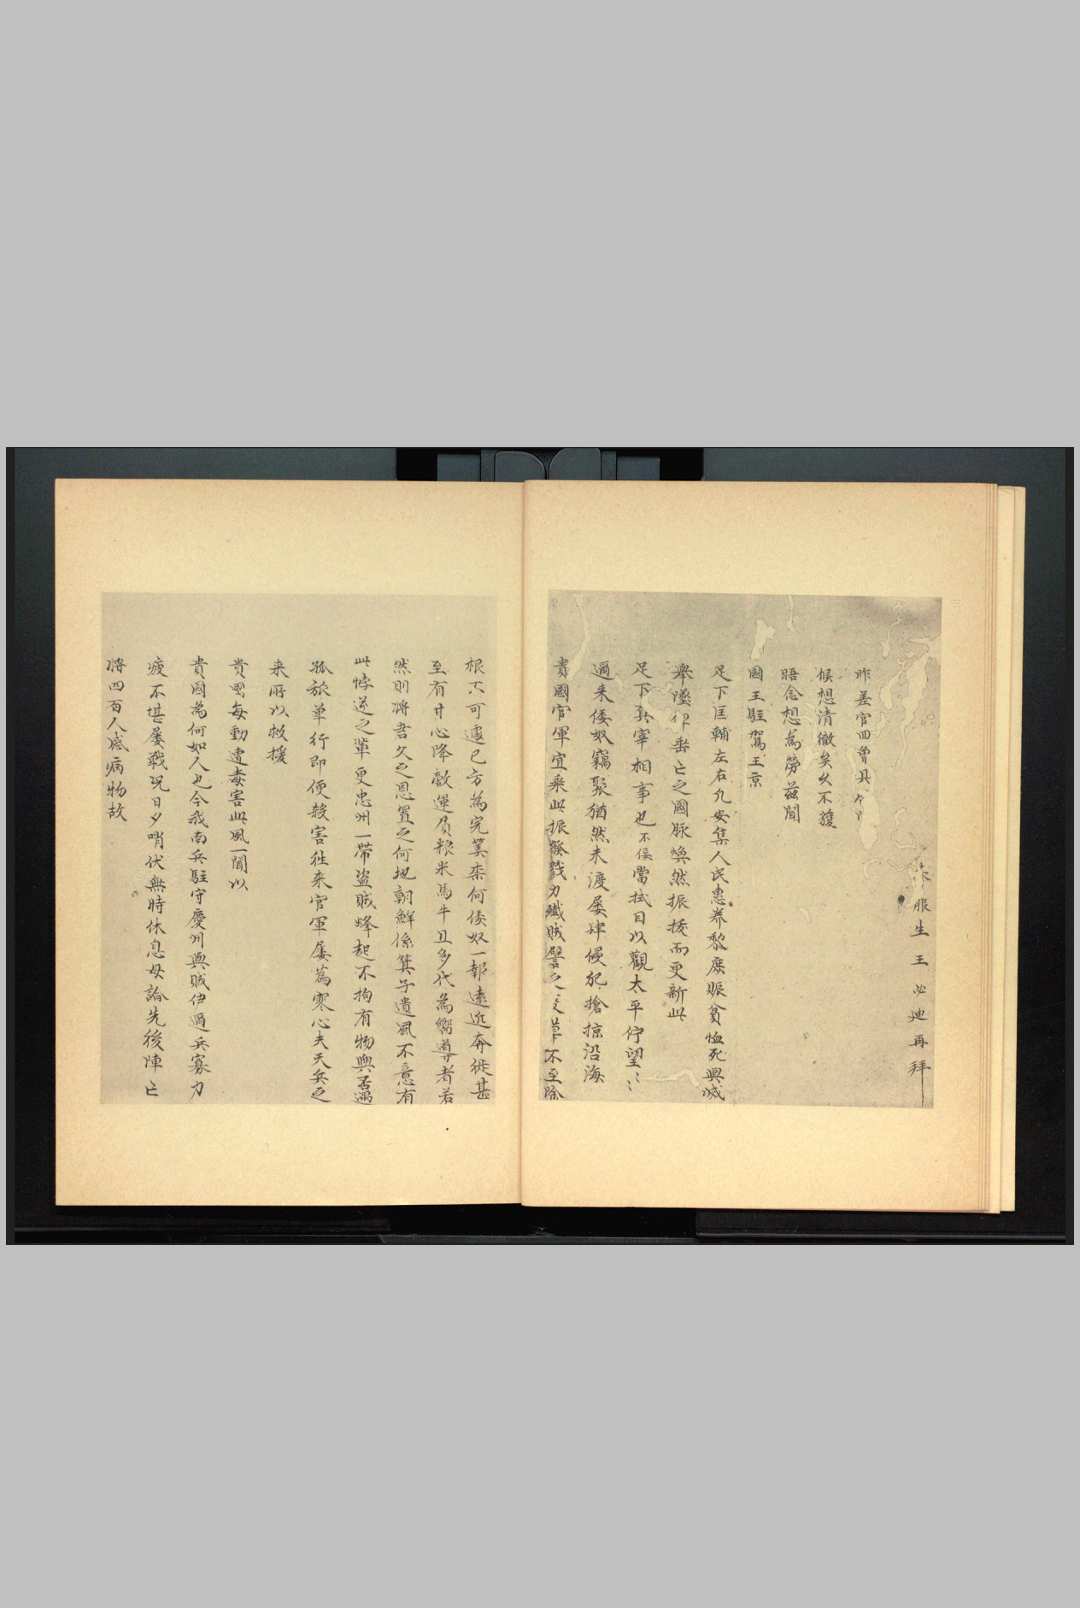 服生王必迪再拜
昨差官回曾具
候想清徹矣久不獲
晤念想為勞茲聞
國王駐駕王京
足下匡輔左右凡安集人民惠養黎庶賑貧恤死興滅
舉墜
亡之國脈煥然振援而更新此
足下真宰相事也不佞當拭目以觀太平佇望
邇來倭奴竊聚猶然未渡屡肆侵犯搶掠沿海
貴國官軍宜乘此振
戮力殲賊譬之
草不至除
根不可遽已方為完筭柰何倭奴一報遠近奔徙甚
至有甘心降敵運負粮米馬牛且多代為嚮導者若
然則將吾久之恩置之何地朝鮮係箕子遺風不意有
此悖逆之輩更忠州一帶盜賊蜂起不拘有物與否遇
孤旅單行即便殺害往來官軍屡為寒心夫天兵之
来所以救援
貴國每動遭毒害此風一聞以
貴國為何如人也今我南兵駐守慶州與賊伊邇兵寡力
疲不堪屡戰況日夕哨伏無時休息毋論先後陣亡
將四百人或病物故